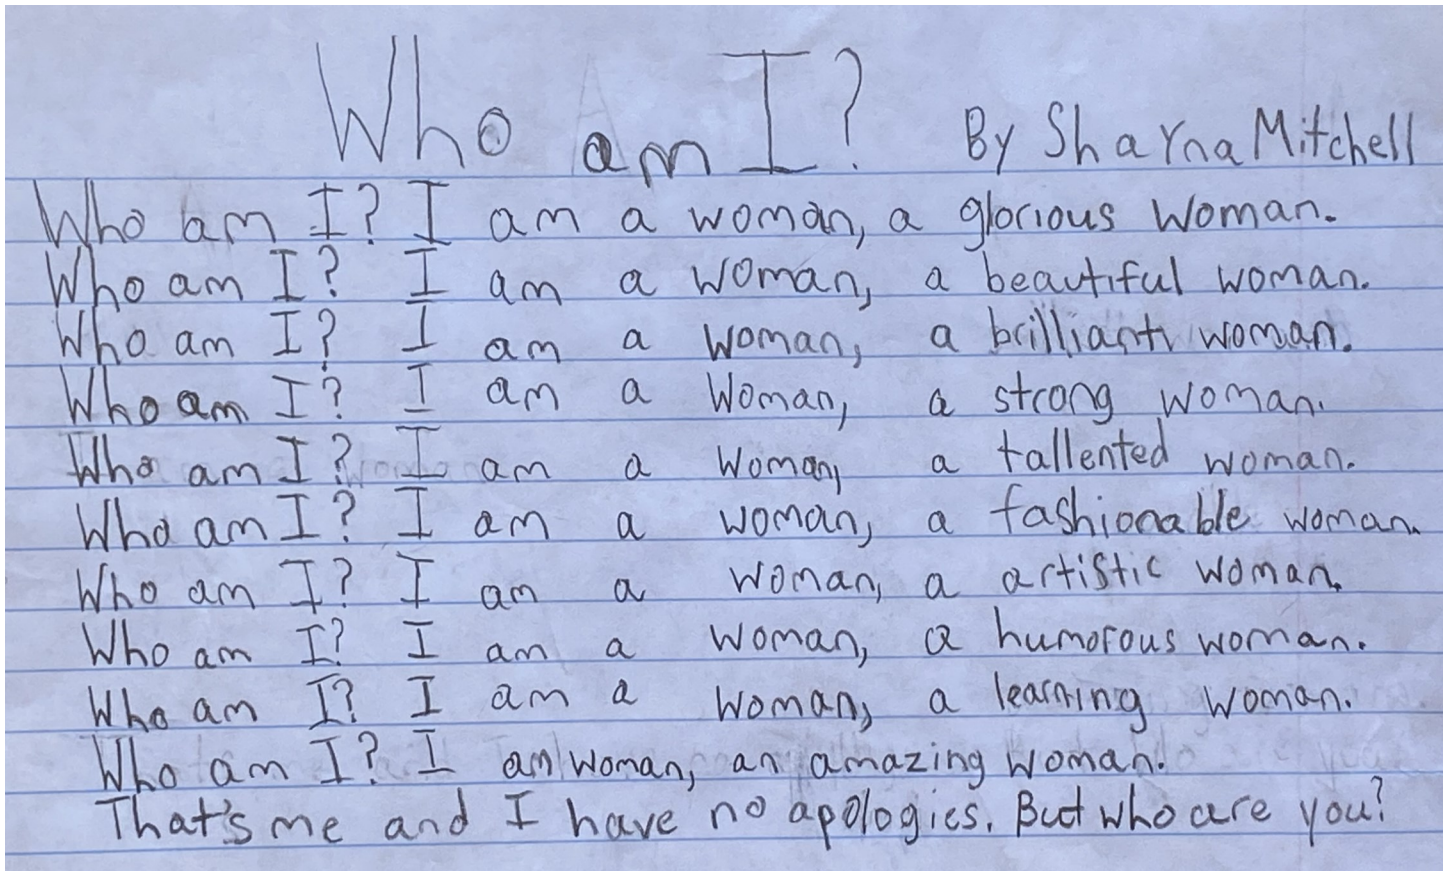 Who am I? By Shayna Mitchell
Who am I? I am a woman, a glorious woman.
Who am I? I am a woman, a beautiful woman.
Who am I? I am a woman, a brilliant woman.
Who am I? I am a woman, a strong woman.
Who am I? I am a woman, a tallented woman.
Who am I? I am a woman, a fashionable woman.
Who am I? I am a woman, a artistic woman.
Who am I? I am a woman, a humorous woman.
Who am I? I am a woman, a learning woman.
Who am I? I am woman, an amazing woman.
That's me and I have no apologies. But who are you?